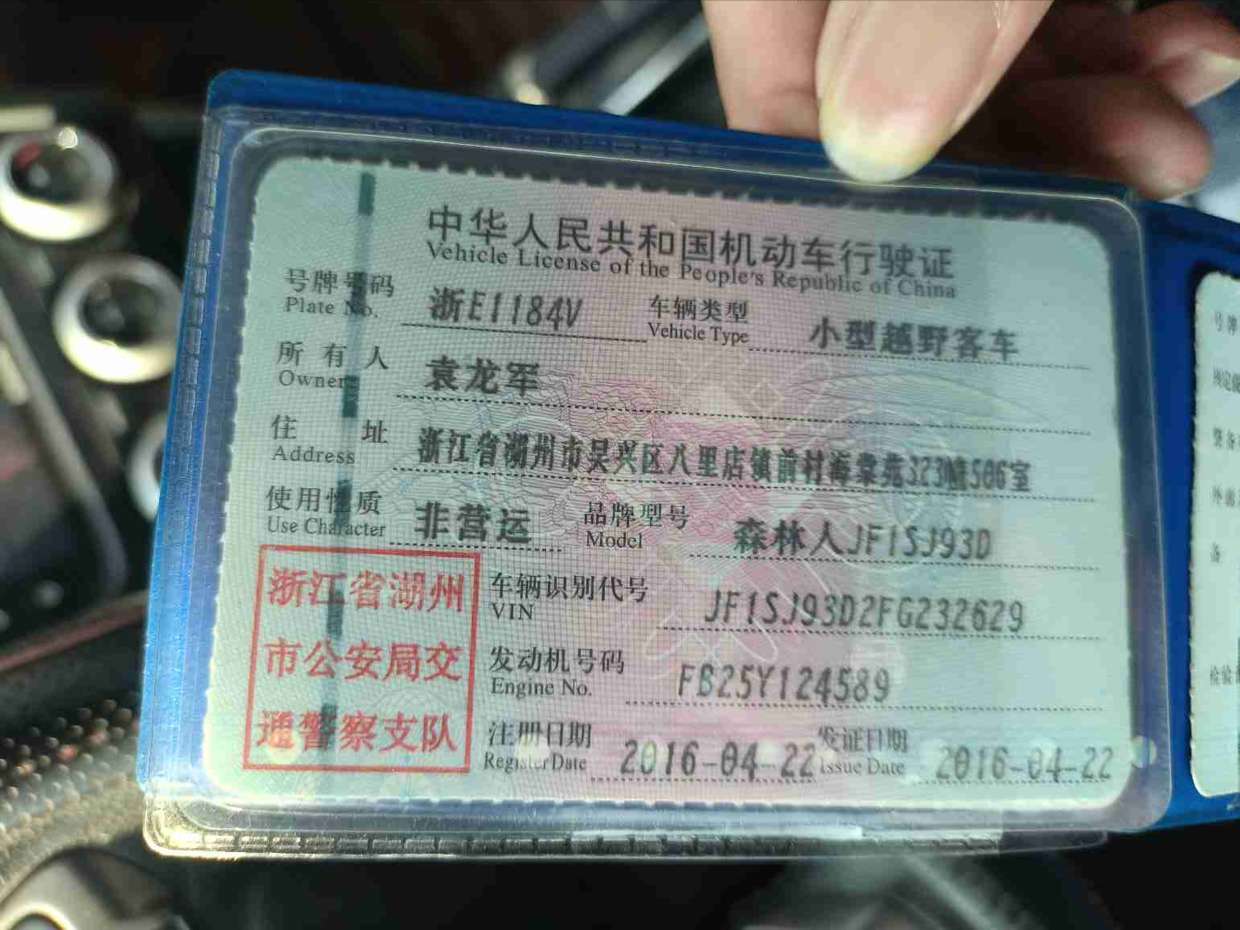 中华人民共和国机动车行驶证
Vehicle License of the People's Republic of China
号牌号码 浙E1184V 车辆类型 小型越野客车
Plate No. Vehicle Type
所有人 袁龙军
Owner
住址 浙江省湖州市吴兴区八里店镇前村海棠苑323幢506室
Address
使用性质 非营运 品牌型号 森林人JF1SJ93D
Use Character Model
浙江省湖州
市公安局交
通警察支队
车辆识别代号 JF1SJ93D2FG232629
VIN
发动机号码 FB25Y124589
Engine No.
注册日期 2016-04-22 发证日期 2016-04-22
Register Date Issue Date